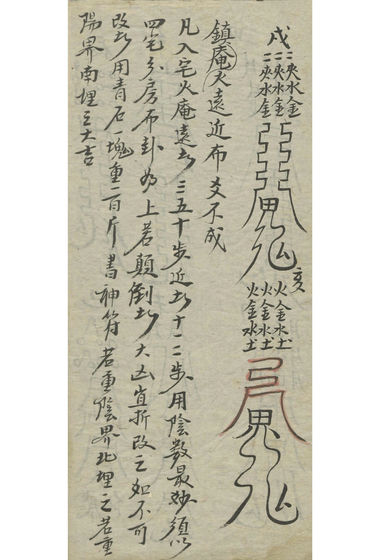 戌
二夾水金
二夾水金
二夾水金
亥
火金水土
火金水土
火金水土
鎮庵火遠近布爻不成
凡入宅火庵遠者三五十步近者十二步用陰数最妙須以
四宅分房布卦为上若顛倒者大凶宜折改之如不可
改者用青石一塊重一百斤書神符若重陰界北埋之若重
陽界南埋之大吉